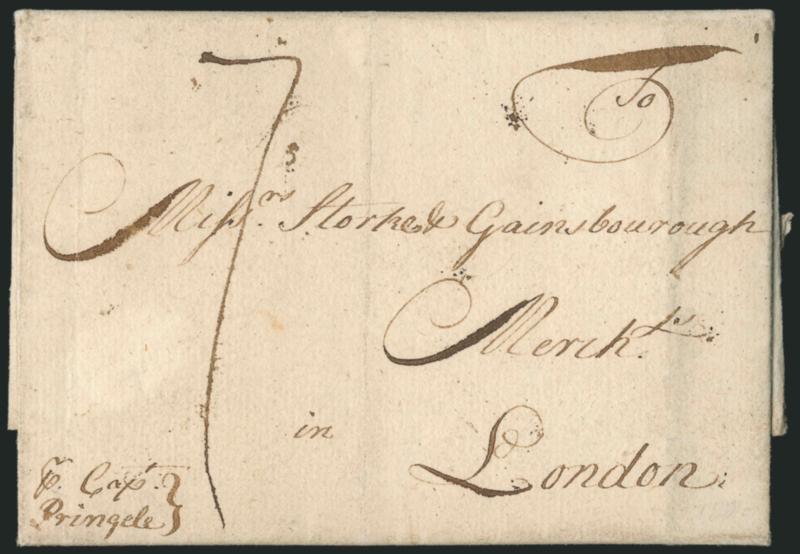 7
To
Missrs. Storke & Gainsbourough
Mercht.s:
in
London:
P. Capt.
Pringele }